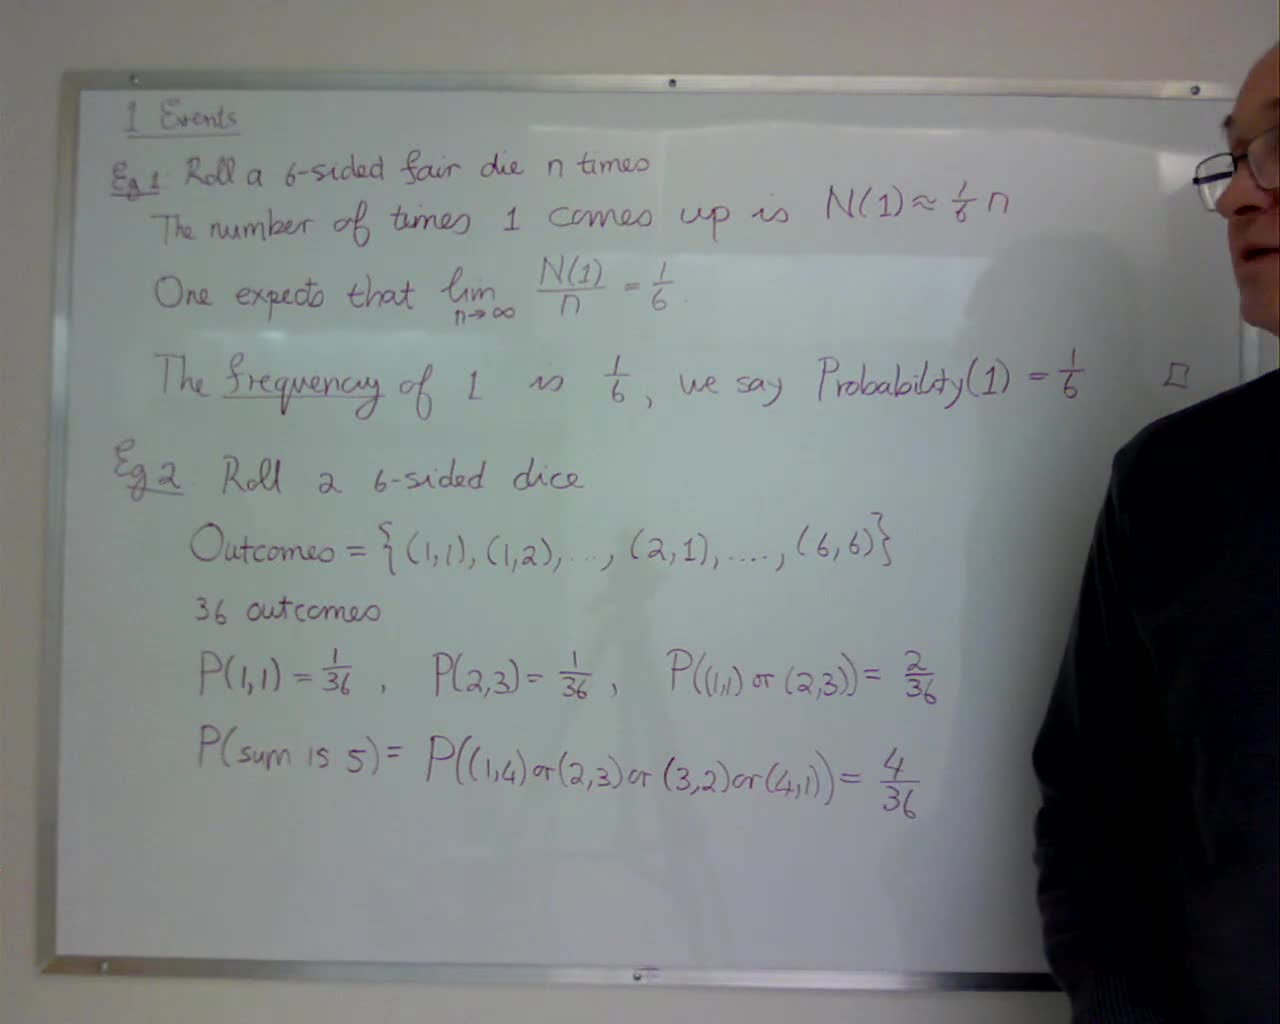 1 Events
Eg 1. Roll a 6-sided fair die n times
The number of times 1 comes up is N(1) ≈ 1/6 n
One expects that lim n→∞ N(1)/n = 1/6.
The frequency of 1 is 1/6, we say Probability(1) = 1/6 □
Eg 2. Roll 2 6-sided dice
Outcomes = {(1,1), (1,2), ..., (2,1), ...., (6,6)}
36 outcomes
P(1,1) = 1/36, P(2,3) = 1/36, P((1,1) or (2,3)) = 2/36
P(sum is 5) = P((1,4) or (2,3) or (3,2) or (4,1)) = 4/36